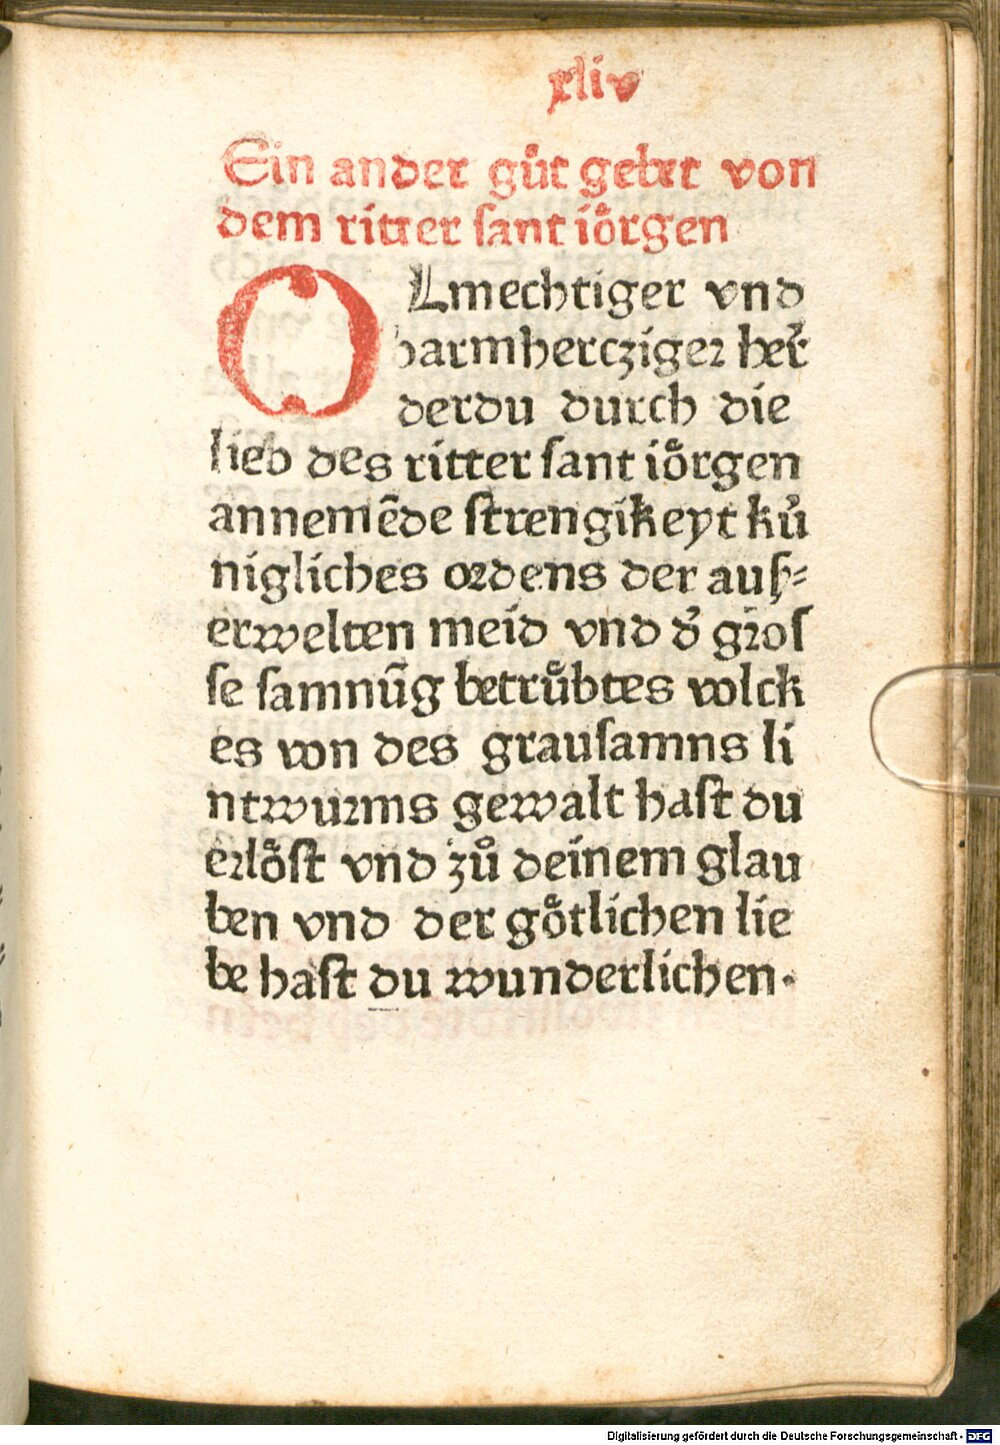 xliv
Ein ander guͦt gebet von
dem ritter ſant ioͤrgen
OLmechtiger vnd
barmhercziger her̃
derdu durch die
lieb des ritter ſant ioͤrgen
annemẽde ſtrengikeyt kuͤ
nigliches ordens der auſz⸗
erwelten meid vnd d᷑ groſ
ſe ſamnũg betruͤbtes volck
es von des grauſamns li
ntwurms gewalt haſt du
erloͤſt vnd zuͦ deinem glau
ben vnd der goͤtlichen lie
be haſt du wunderlichen.
Digitalisierung gefördert durch die Deutsche Forschungsgemeinschaft - DFG